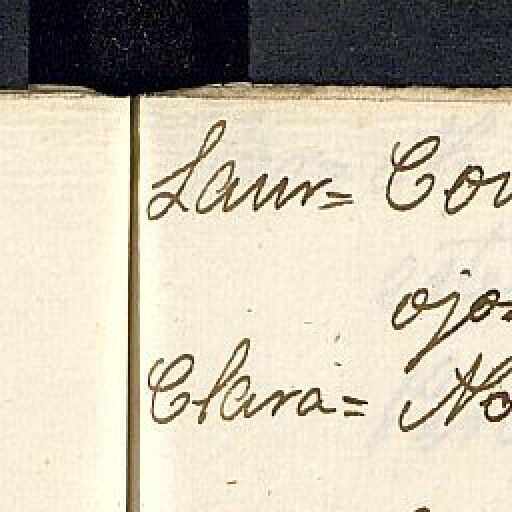 Laur= Con
ojo
Clara= No